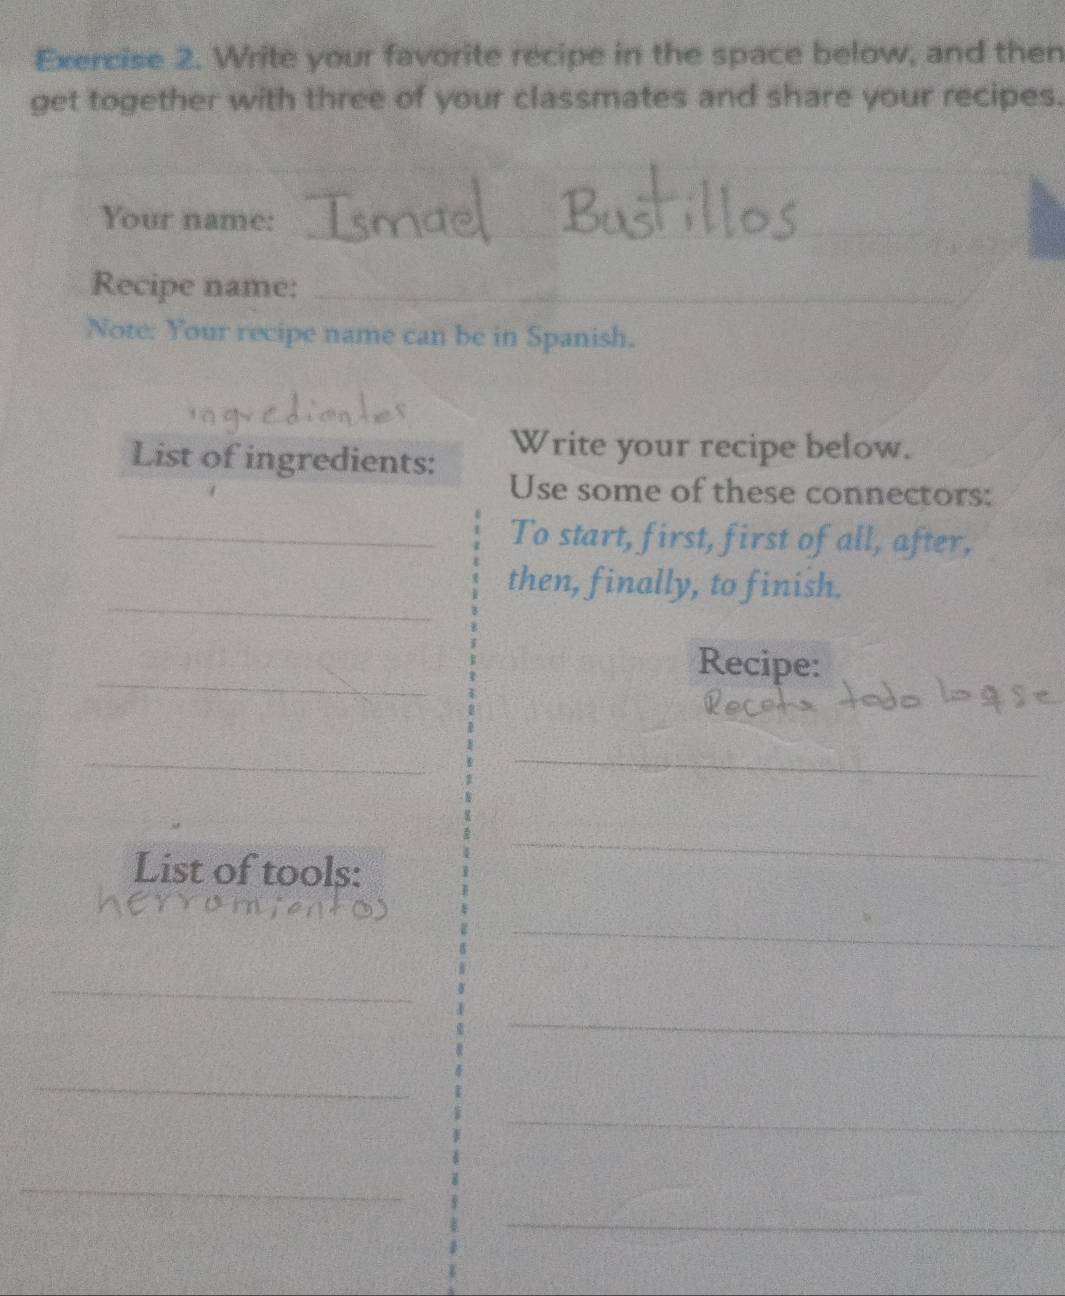 Exercise 2. Write your favorite recipe in the space below, and then
get together with three of your classmates and share your recipes.
Your name: Ismael Bustillos
Recipe name:
Note: Your recipe name can be in Spanish.
ingredientes
List of ingredients:
Write your recipe below.
Use some of these connectors:
To start, first, first of all, after,
then, finally, to finish.
Recipe:
Receta todo lo q se
List of tools:
herramientas